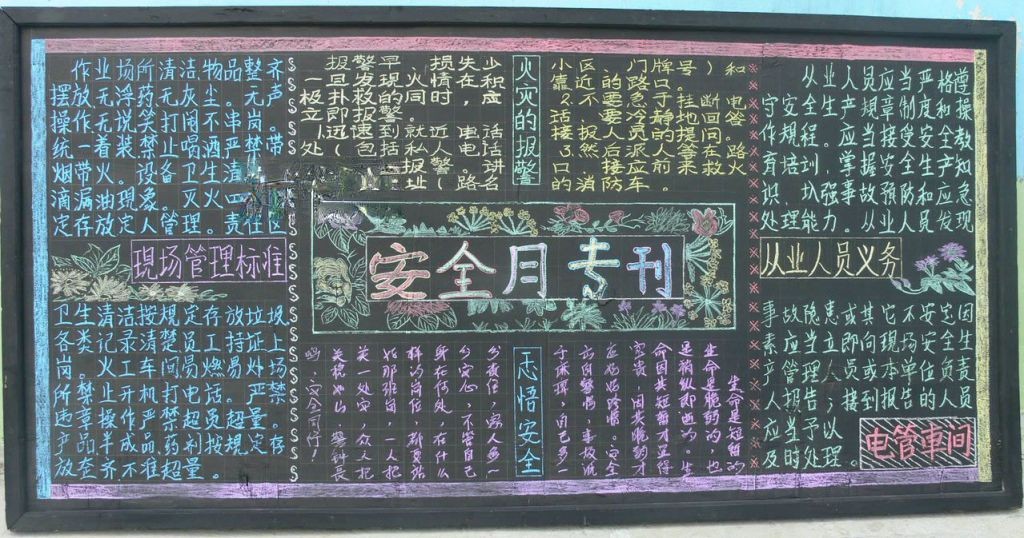 作业场所清洁,物品整齐
摆放无浮药无灰尘。无声
操作无说笑打闹不串岗。
统一着装禁止喷酒严禁带
烟带火。设备卫生清
滴漏油现象。灭火四
定存放定人管理。责任区
现场管理标准
卫生清洁按规定存放垃圾
各类记录清楚员工持证上
岗。火工车间易燃易炸场
所禁止开机打电话。严禁
速章操作严禁超员超量。
产品半成品药剂按规定存
放查齐不准超量。
报警早损失少
一回发现火情,在积
极扑救的同时,应
立即报警
火灾的报警
小区的门牌号)和
靠近的路口
2.不要急于挂断电
话,要冷静地回答
接报人员的提问。
3.然后派人等车路
口,接应前来救火
的消防车.
安全月专刊
生命是短暂的
生命是脆弱的,也
是稍纵即逝的。生
命因其短暂才显得
宝贵,因其脆弱才
自己多一
忘悟安全
分责任,家人多一
分安心。不管自己
身在何处,在什么
样的岗位,都要站
好那班岗,一人把
关一处安,众人把
关稳如山。警钟长
鸣,安全同行!
从业人员应当严格遵
守安全生产规章制度和操
作规程。应当接受安全教
育培训,掌握安全生产知
识,以强事故预防和应急
处理能力。从业人员发现
从业人员义务
事故隐患或其它不安定因
素应当立即向现场安全生
产管理人员或本单位负责
人报告;接到报告的人员
应当予以
及时处理。
电管車间